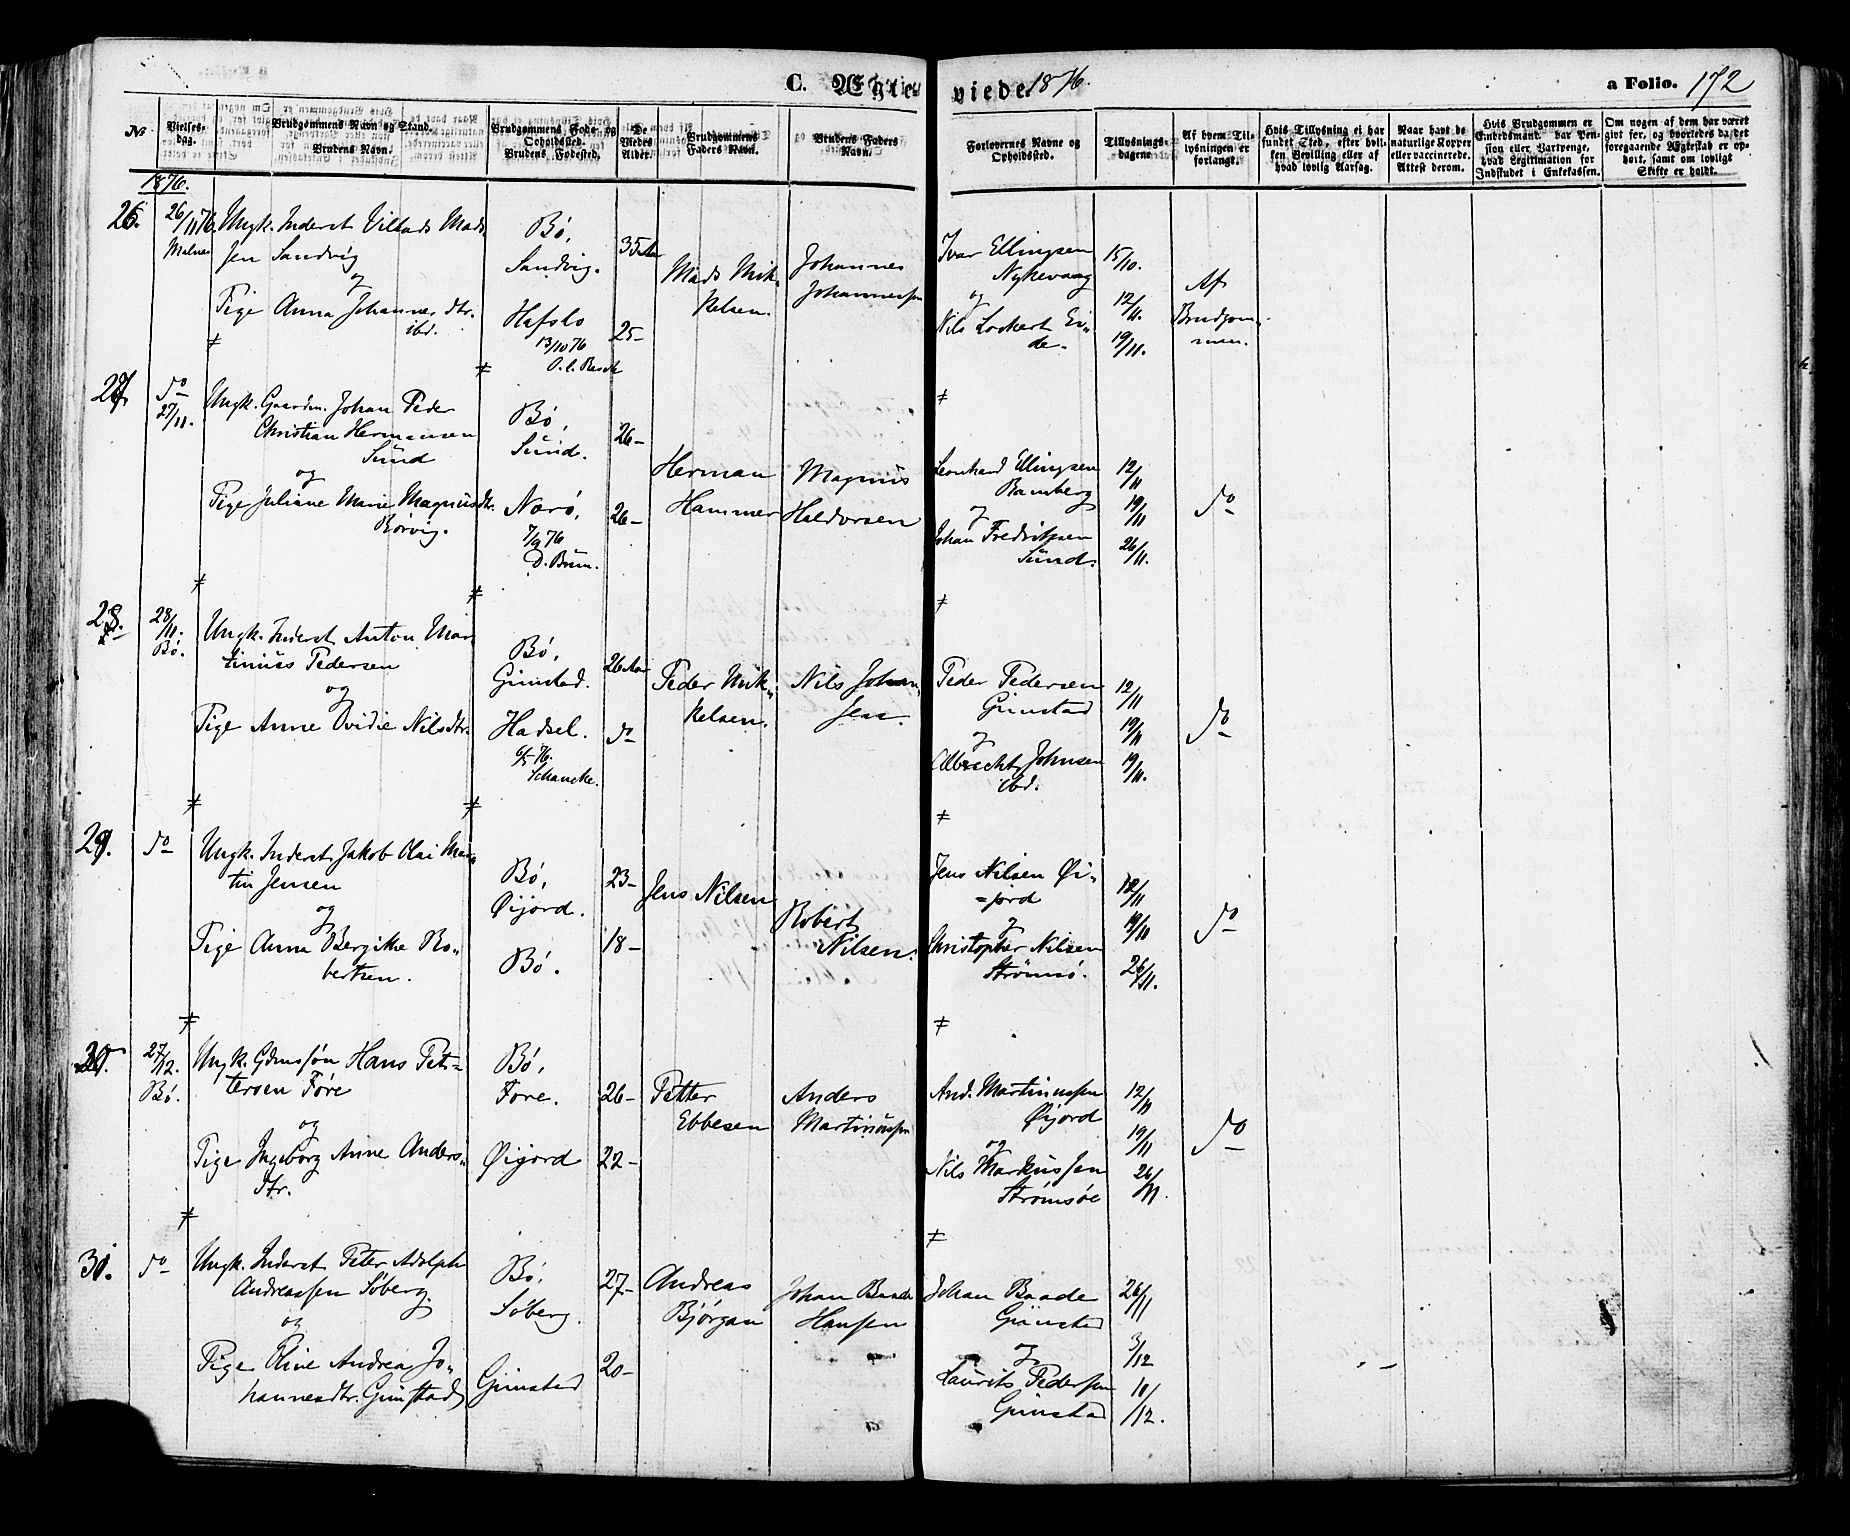 C. Ægteviede 1876.
a Folio. 172
No
Vielses-
dag.
Brudgommens Navn og Stand.
Brudens Navn.
Brudgommens Føde- og
Opholdssted.
Brudens Fødested.
De
Viedes
Alder.
Brudgommens
Faders Navn.
Brudens Faders
Navn.
Forlovernes Navne og
Opholdssted.
Tillysnings-
dagene
Af hvem Til-
lysningen er
forlangt.
Hvis Tillysning ei har
fundet Sted, efter hvil-
ken Bevilling eller af
hvad lovlig Aarsag.
Naar havt de
naturlige Kopper
eller vaccinerede.
Attest derom.
Hvis Brudgommen er
Enkedsmand har Pen-
sion eller Vartpenge,
hvad Legitimation for
Indskudet i Enkekassen.
Om nogen af dem har været
givt før, og hvorledes da det
foregaaende Ægteskab er op-
hørt, samt om lovligt
Skifte er holdt.
1876.
26.
26/11 76.
Malnes
Ungk. Inderst Villads Mads
sen Sandvig
og
Pige Anna Johannesdtr.
ibd.
Bø,
Sandvig.
Hafslo
13/10 76
35 Aar
25-
Mads Mik-
kelsen.
Johannes
Johannessen
Ivar Ellingsen
Nykevaag
og
Nils Lockert Ei-
de.
15/10.
12/11.
19/11.
Af
Brudgom-
men.
27
do
27/11.
Ungk. Gaardm. Johan Peder
Christian Hermansen
Sund
og
Pige Juliane Marie Magnusdtr.
Rørvig.
Bø,
Sund.
Nærø,
7/9 76
D. Bruun.
26-
26-
Herman
Hammer
Magnus
Haldorsen
Leonhard Ellingsen
Ramberg
og
Johan Fredriksen
Sund.
12/11
19/11
26/11.
do
28.
28/11.
Bø.
Ungk. Inderst Anton Mar
tinus Pedersen
og
Pige Anne Ovidie Nilsdtr.
Bø,
Grimstad.
Hadsel.
6/5 76.
Schancke.
26 Aar
do
Peder Mik-
kelsen.
Nils Johan-
sen.
Peder Pedersen
Grimstad
og
Albrecht Johnsen
ibd.
12/11
19/11
19/11.
do
29.
do
Ungk. Inderst Jakob Olai Mar
tin Jensen
og
Pige Anna Bergitte Ro-
bertsen.
Bø,
Øijord.
Bø.
23-
18-
Jens Nilsen
Robert
Nilsen.
Jens Nilsen Øi-
=jord
og
Christopher Nilsen
Strømsø.
12/11
19/10
26/11.
do
30.
27/12.
Bø.
Ungk. Gdmssøn Hans Pet-
tersen Føre
og
Pige Ingeborg Anne Anders-
dtr.
Bø,
Føre.
Øijord
26-
22-
Petter
Ebbesen
Anders
Martinussen
And. Martinussen
Øijord
og
Nils Markussen
Strømsøe
12/11
19/11
26/11.
do
31.
do
Ungk. Inderst Peter Adolph
Andreassen Søberg.
og
Pige Oline Andrea Jo-
hannesdtr. Grimstad
Bø,
Søberg.
Grimstad
27-
20-
Andreas
Bjørgan
Johan Baade
Hansen
Johan Baade
Grimstad
og
Laurits Pedersen
Grimstad
26/11
3/12
10/12.